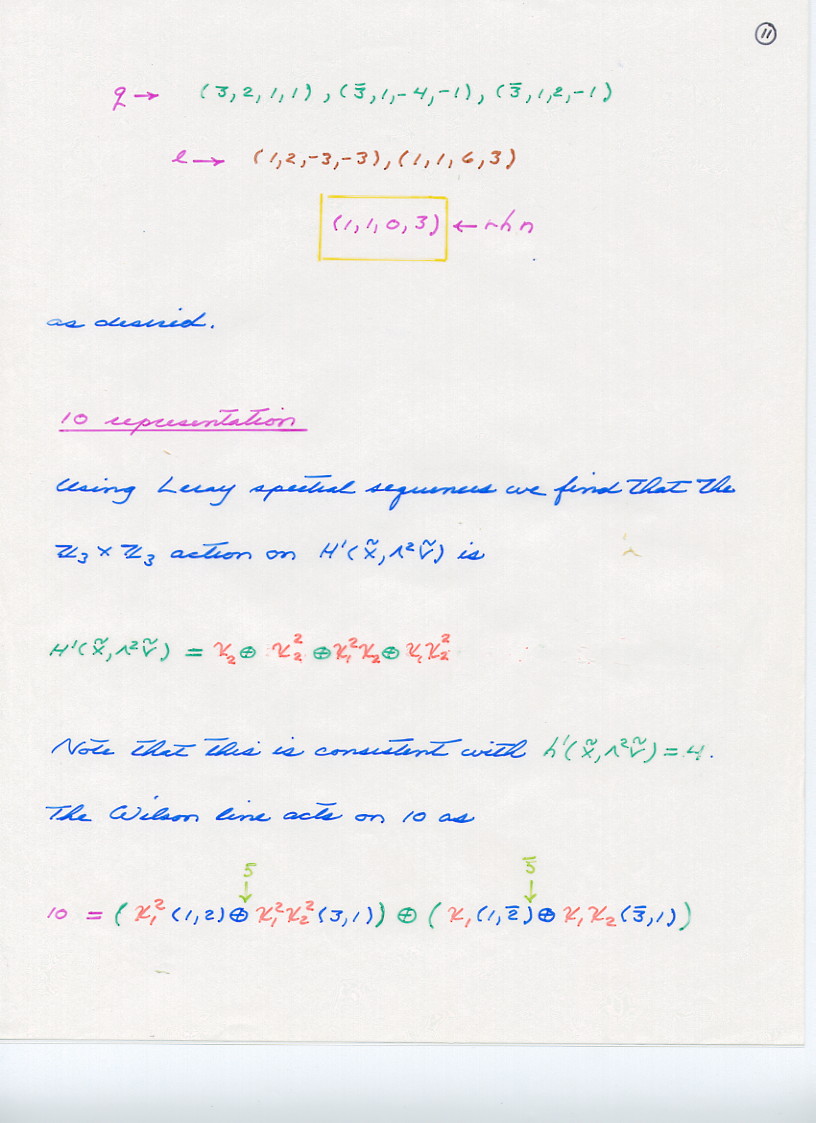 11
q → (3,2,1,1), (3̄,1,-4,-1), (3̄,1,2,-1)
l → (1,2,-3,-3), (1,1,6,3)
(1,1,0,3) ← rhn
as desired.
10 representation
Using Leray spectral sequences we find that the
ℤ₃ × ℤ₃ action on H¹(X̃, Λ²Ṽ) is
H¹(X̃, Λ²Ṽ) = χ₂ ⊕ χ₂² ⊕ χ₁²χ₂ ⊕ χ₁χ₂²
Note that this is consistent with h¹(X̃, Λ²Ṽ) = 4.
The Wilson line acts on 10 as
5 5̄
↓ ↓
10 = (χ₁²(1,2) ⊕ χ₁²χ₂²(3,1)) ⊕ (χ₁(1,2̄) ⊕ χ₁χ₂(3̄,1))